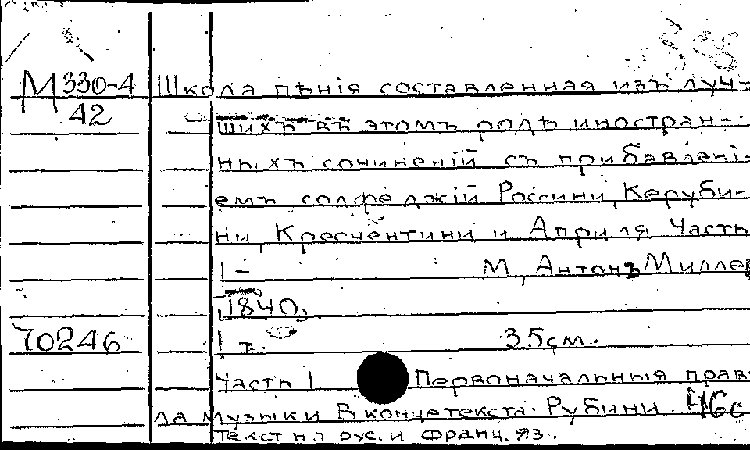 М 330-4 Школа пѣнія составленная изъ луч-
42 шихъ въ этомъ родѣ иностран-
ныхъ сочиненій съ прибавлені-
емъ солфеджій Россини, Керуби-
ни, Кресчентини и Априля Часть
1- М, Антонъ Миллер
1840.
70246 1 т. 35см.
Часть 1 Первоначальныя прави-
ла музыки В конце текста: Рубини 46 с
Текст на рус. и франц. яз.